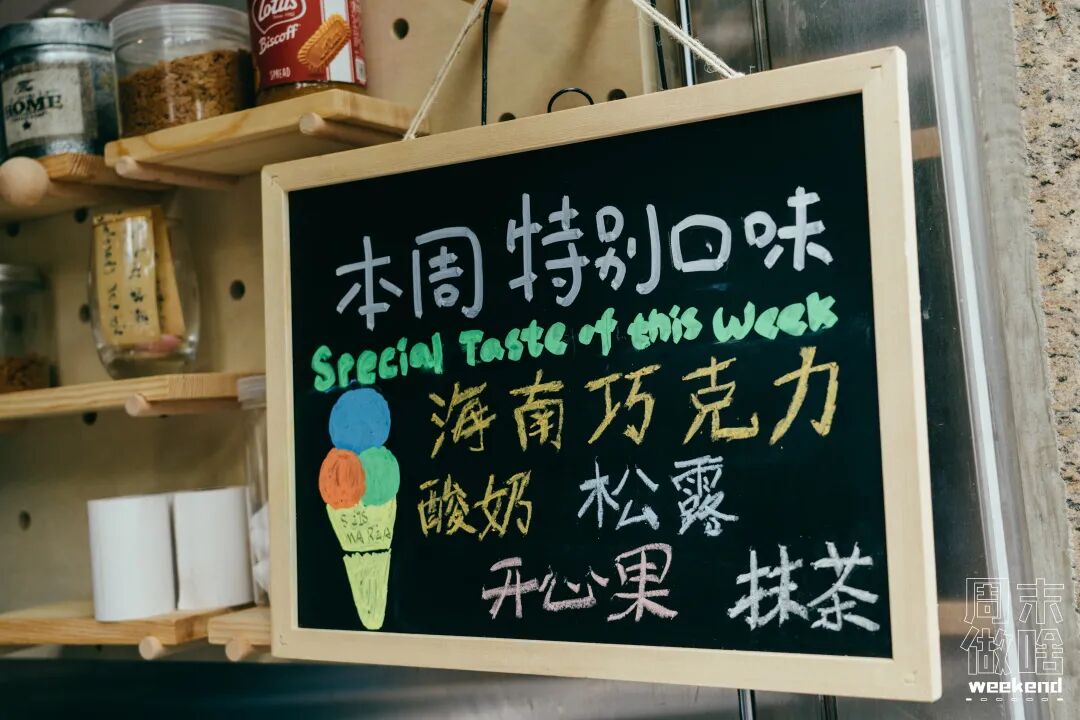 Lotus
Biscoff
SPREAD
HOME
本周特别口味
Special Taste of this Week
海南巧克力
酸奶 松露
开心果 抹茶
SILS
MARIA
周末
做啥
weekend